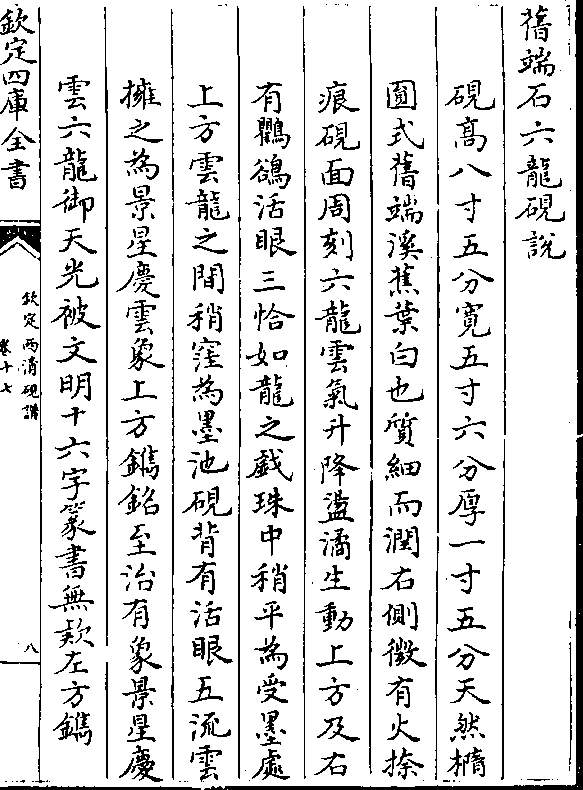 舊端石六龍硯說
硯高八寸五分寬五寸六分厚一寸五分天然橢
圓式舊端溪蕉葉白也質細而潤右側微有火捺
痕硯面周刻六龍雲氣升降盪潏生動上方及右
有鸜鵒活眼三恰如龍之戲珠中稍平為受墨處
上方雲龍之間稍窪為墨池硯背有活眼五流雲
擁之為景星慶雲象上方鐫銘至治有象景星慶
雲六龍御天光被文明十六字篆書無欵左方鐫
欽定四庫全書
欽定西清硯譜
卷十七
八